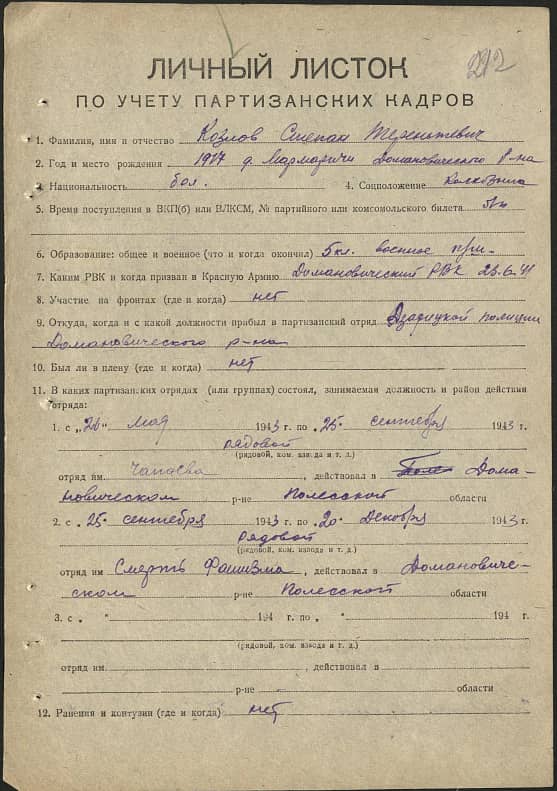 212
ЛИЧНЫЙ ЛИСТОК
ПО УЧЕТУ ПАРТИЗАНСКИХ КАДРОВ
1. Фамилия, имя и отчество Козлов Степан Терентьевич
2. Год и место рождения 1917 д. Мармовичи Домановического р-на
3. Национальность бел. 4. Соцположение Колхозник
5. Время поступления в ВКП(б) или ВЛКСМ, № партийного или комсомольского билета
6. Образование: общее и военное (что и когда окончил) 5 кл. военное
7. Каким РВК и когда призван в Красную Армию Домановический РВК 23.6.41
8. Участие на фронтах (где и когда) нет
9. Откуда, когда и с какой должности прибыл в партизанский отряд полиции
Домановического р-на
10. Был ли в плену (где и когда) нет
11. В каких партизанских отрядах (или группах) состоял, занимаемая должность и район действия
отряда:
1. с „26" мая 1943 г. по „25" сентября 1943 г.
рядовой
(рядовой, ком. взвода и т. д.)
отряд им Чапаева, действовал в Дома-
новическом р-не Полесской области
2. с „25" сентября 1943 г. по „20" декабря 1943 г.
рядовой
(рядовой, ком. взвода и т. д.)
отряд им Смерть Фашизма, действовал в Домановиче-
ском р-не Полесской области
3. с „ " 194 г. по „ " 194 г.
(рядовой, ком. взвода и т. д.)
отряд им. , действовал в
р-не области
12. Ранения и контузии (где и когда) нет